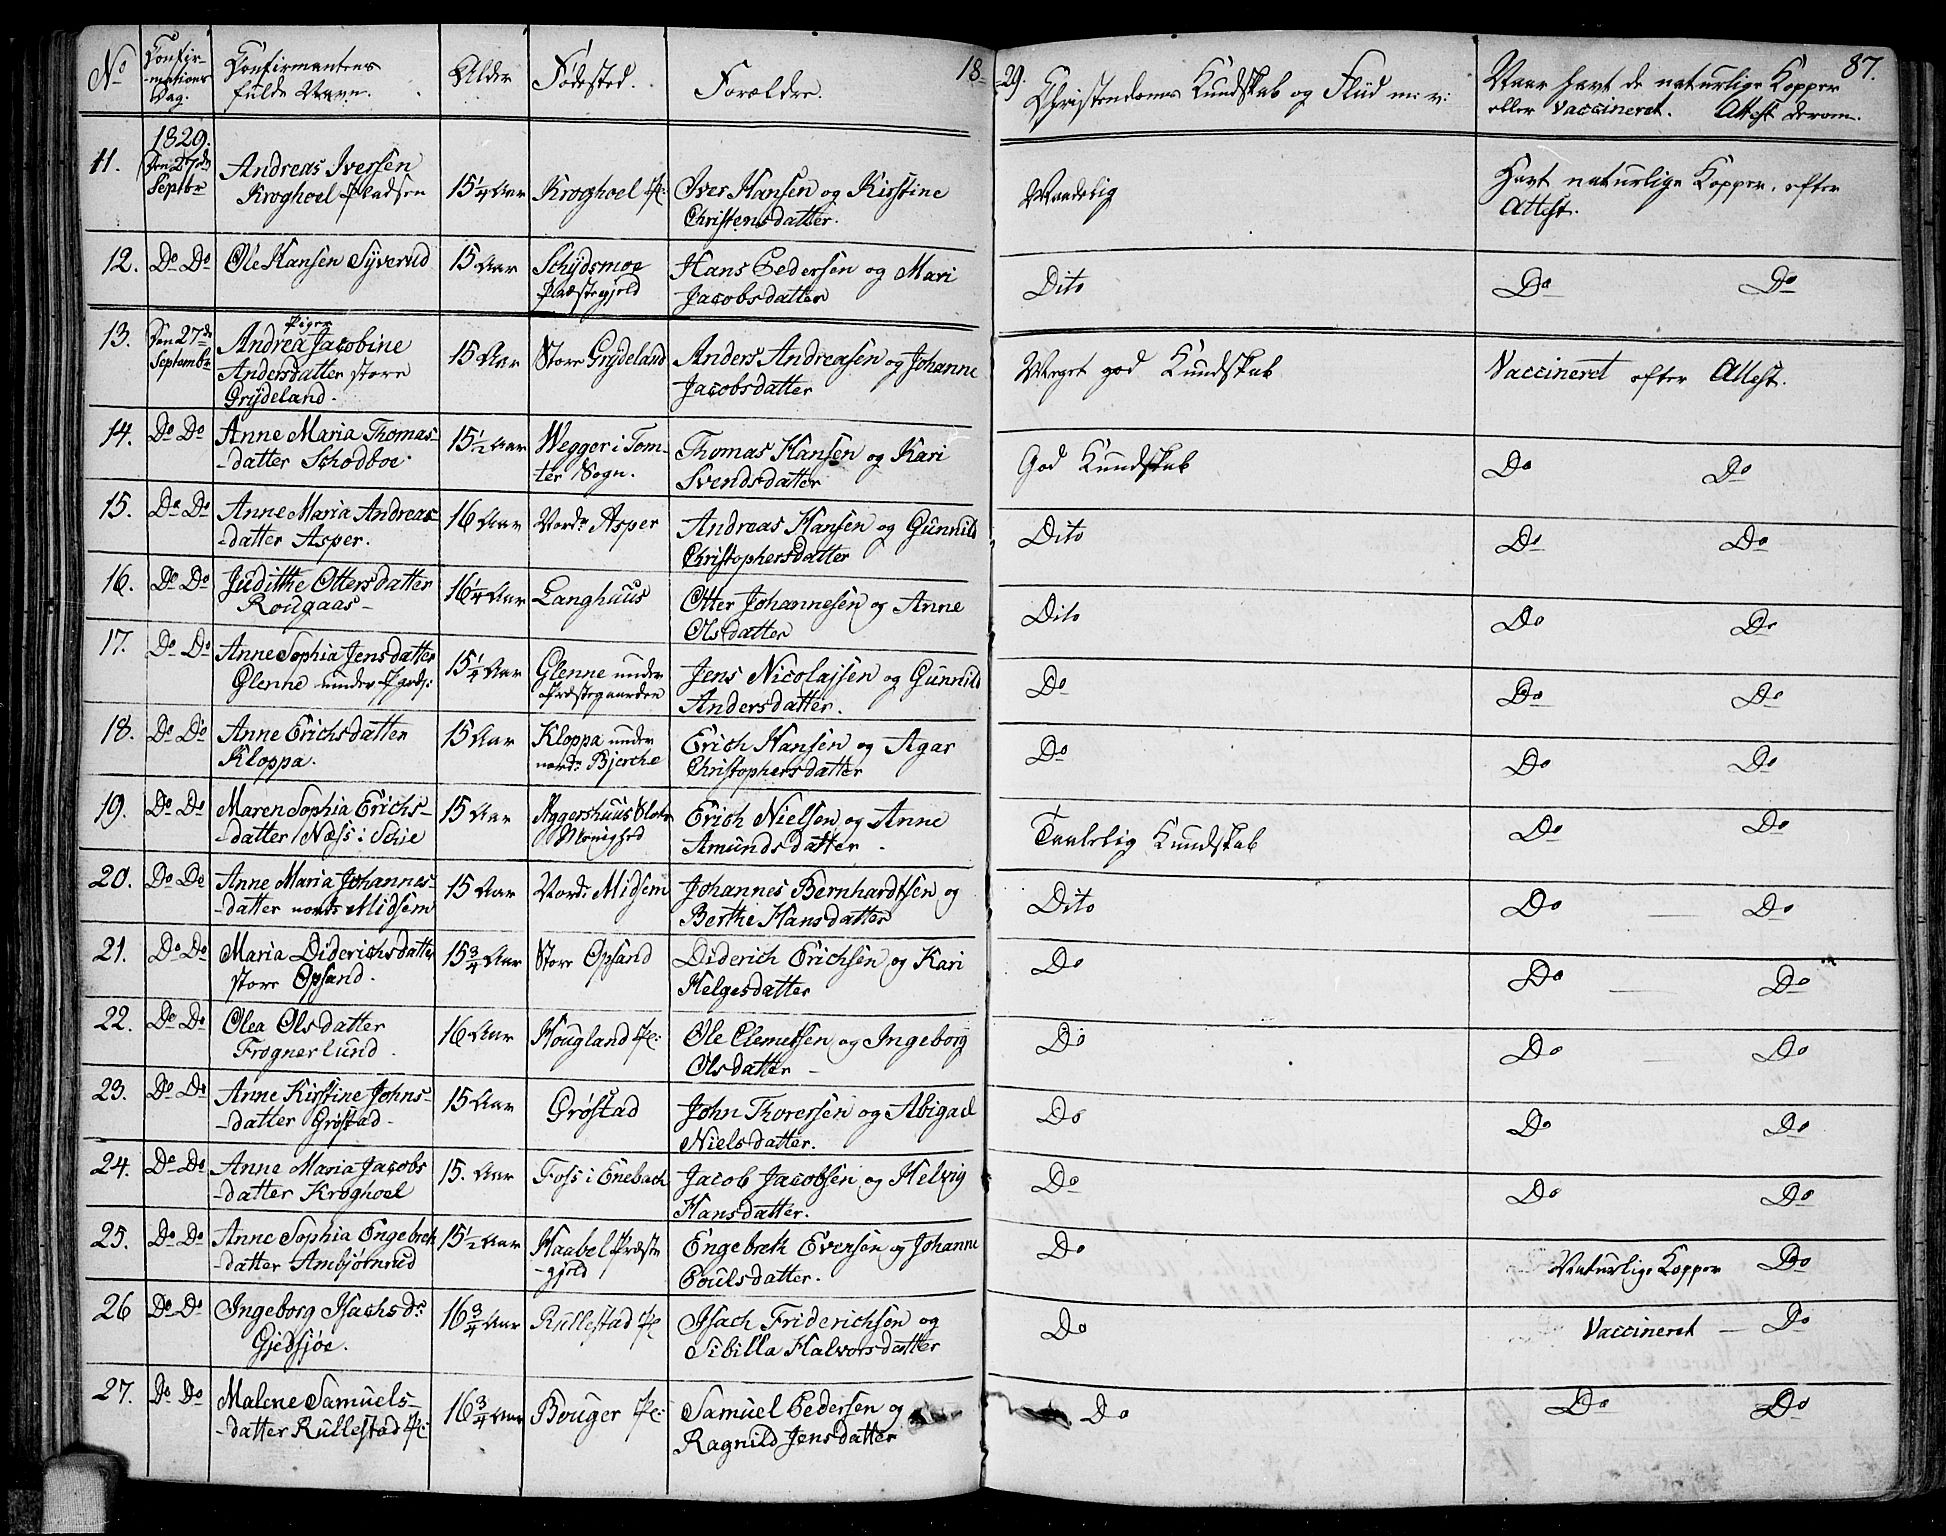 No
Confir-
-mations
Dag.
Confirmantens
fulde Navn.
Alder
Fødested.
Forældre.
18-
29.
Christendoms Kundskab og Fliid m: v:
Naar havt de naturlige Kopper
eller Vaccineret. Attest derom.
87.
11.
1829.
Den 27de
Septbr
Andreas Iversen
Kroghoel Pladsen
15 1/4 Aar
Kroghoel Pl:
Iver Hansen og Kirstine
Christensdatter.
Maadelig
Havt naturlige Kopper, efter
Attest.
12.
Do Do
Ole Hansen Syverud
15 Aar
Schydsmoe
Præstegjeld
Hans Pedersen og Mari
Jacobsdatter
Dito
Do
Do
13.
Den 27de
Septembr
Piger
Andrea Jacobine
Andersdatter store
Grydeland.
15 Aar
Store Grydeland
Anders Andreasen og Johanne
Jacobsdatter
Meget god Kundskab
Vaccineret efter Attest.
14.
Do Do
Anne Maria Thomas-
-datter Schodboe.
15 1/2 Aar
Wegger i Tom-
ter Sogn.
Thomas Hansen og Kari
Svendsdatter
God Kundskab
Do
Do
15.
Do Do
Anne Maria Andreas-
-datter Asper.
16 Aar
Nord: Asper
Andreas Hansen og Gunnild
Christophersdatter
Dito
Do
Do
16.
Do Do
Judithe Ottersdatter
Rougaas-
16 1/4 Aar
Langhuus
Otter Johannesen og Anne
Olsdatter
Dito
Do
Do
17.
Do Do
Anne Sophia Jensdatter
Glenne under Pgrd:
15 1/4 Aar
Glenne under
Præstegaarden
Jens Nicolajsen og Gunnild
Andersdatter.
Do
Do
Do
18.
Do Do
Anne Erichsdatter
Kloppa.
15 Aar
Kloppa under
nord: Bjerche
Erich Hansen og Agar
Christophersdatter
Do
Do
Do
19.
Do Do
Maren Sophia Erichs-
-datter Næss i Schie
15 Aar
Aggershuus Slots
Menighed
Erich Nielsen og Anne
Amundsdatter -
Taalelig Kundskab
Do
Do
20.
Do Do
Anne Maria Johannes-
-datter nordr Midsem
15 Aar
Nord: Midsem
Johannes Bernhardtsen og
Berthe Hansdatter
Dito
Do
Do
21.
Do Do
Maria Diderichsdatter
store Opsand.
15 3/4 Aar
Store Opsand
Diderich Erichsen og Kari
Helgesdatter
Do
Do
Do
22.
Do Do
Olea Olsdatter
Frognerlund.
16 Aar
Hougland Pl:
Ole Clemetsen og Ingeborg
Olsdatter -
Do
Do
Do
23.
Do Do
Anne Kirstine Johns-
-datter Grøstad-
15 Aar
Grøstad
John Thoresen og Abigael
Nielsdatter.
Do
Do
Do
24.
Do Do
Anne Maria Jacobs
-datter Kroghoel
15. Aar
Foss i Enebach
Jacob Jacobsen og Helvig
Hansdatter.
Do
Do
Do
25.
Do Do
Anne Sophia Engebret
-datter Ambjørnrud
15 1/2 Aar
Haabel Præste
-gjeld
Engebreth Evensen og Johanne
Poulsdatter.
Do
Naturlige Kopper
Do
26
Do Do
Ingeborg Isachsdr
Gjedsjøe.
16 3/4 Aar
Rullestad Pl
Isach Friderichsen og
Sibilla Halvorsdatter
Do
Vaccineret -
Do
27.
Do Do
Malene Samuels-
-datter Rullestad Pl:
16 3/4 Aar
Bouger Pl:
Samuel Pedersen og
Ragnild Jensdatter
Do
Do
Do